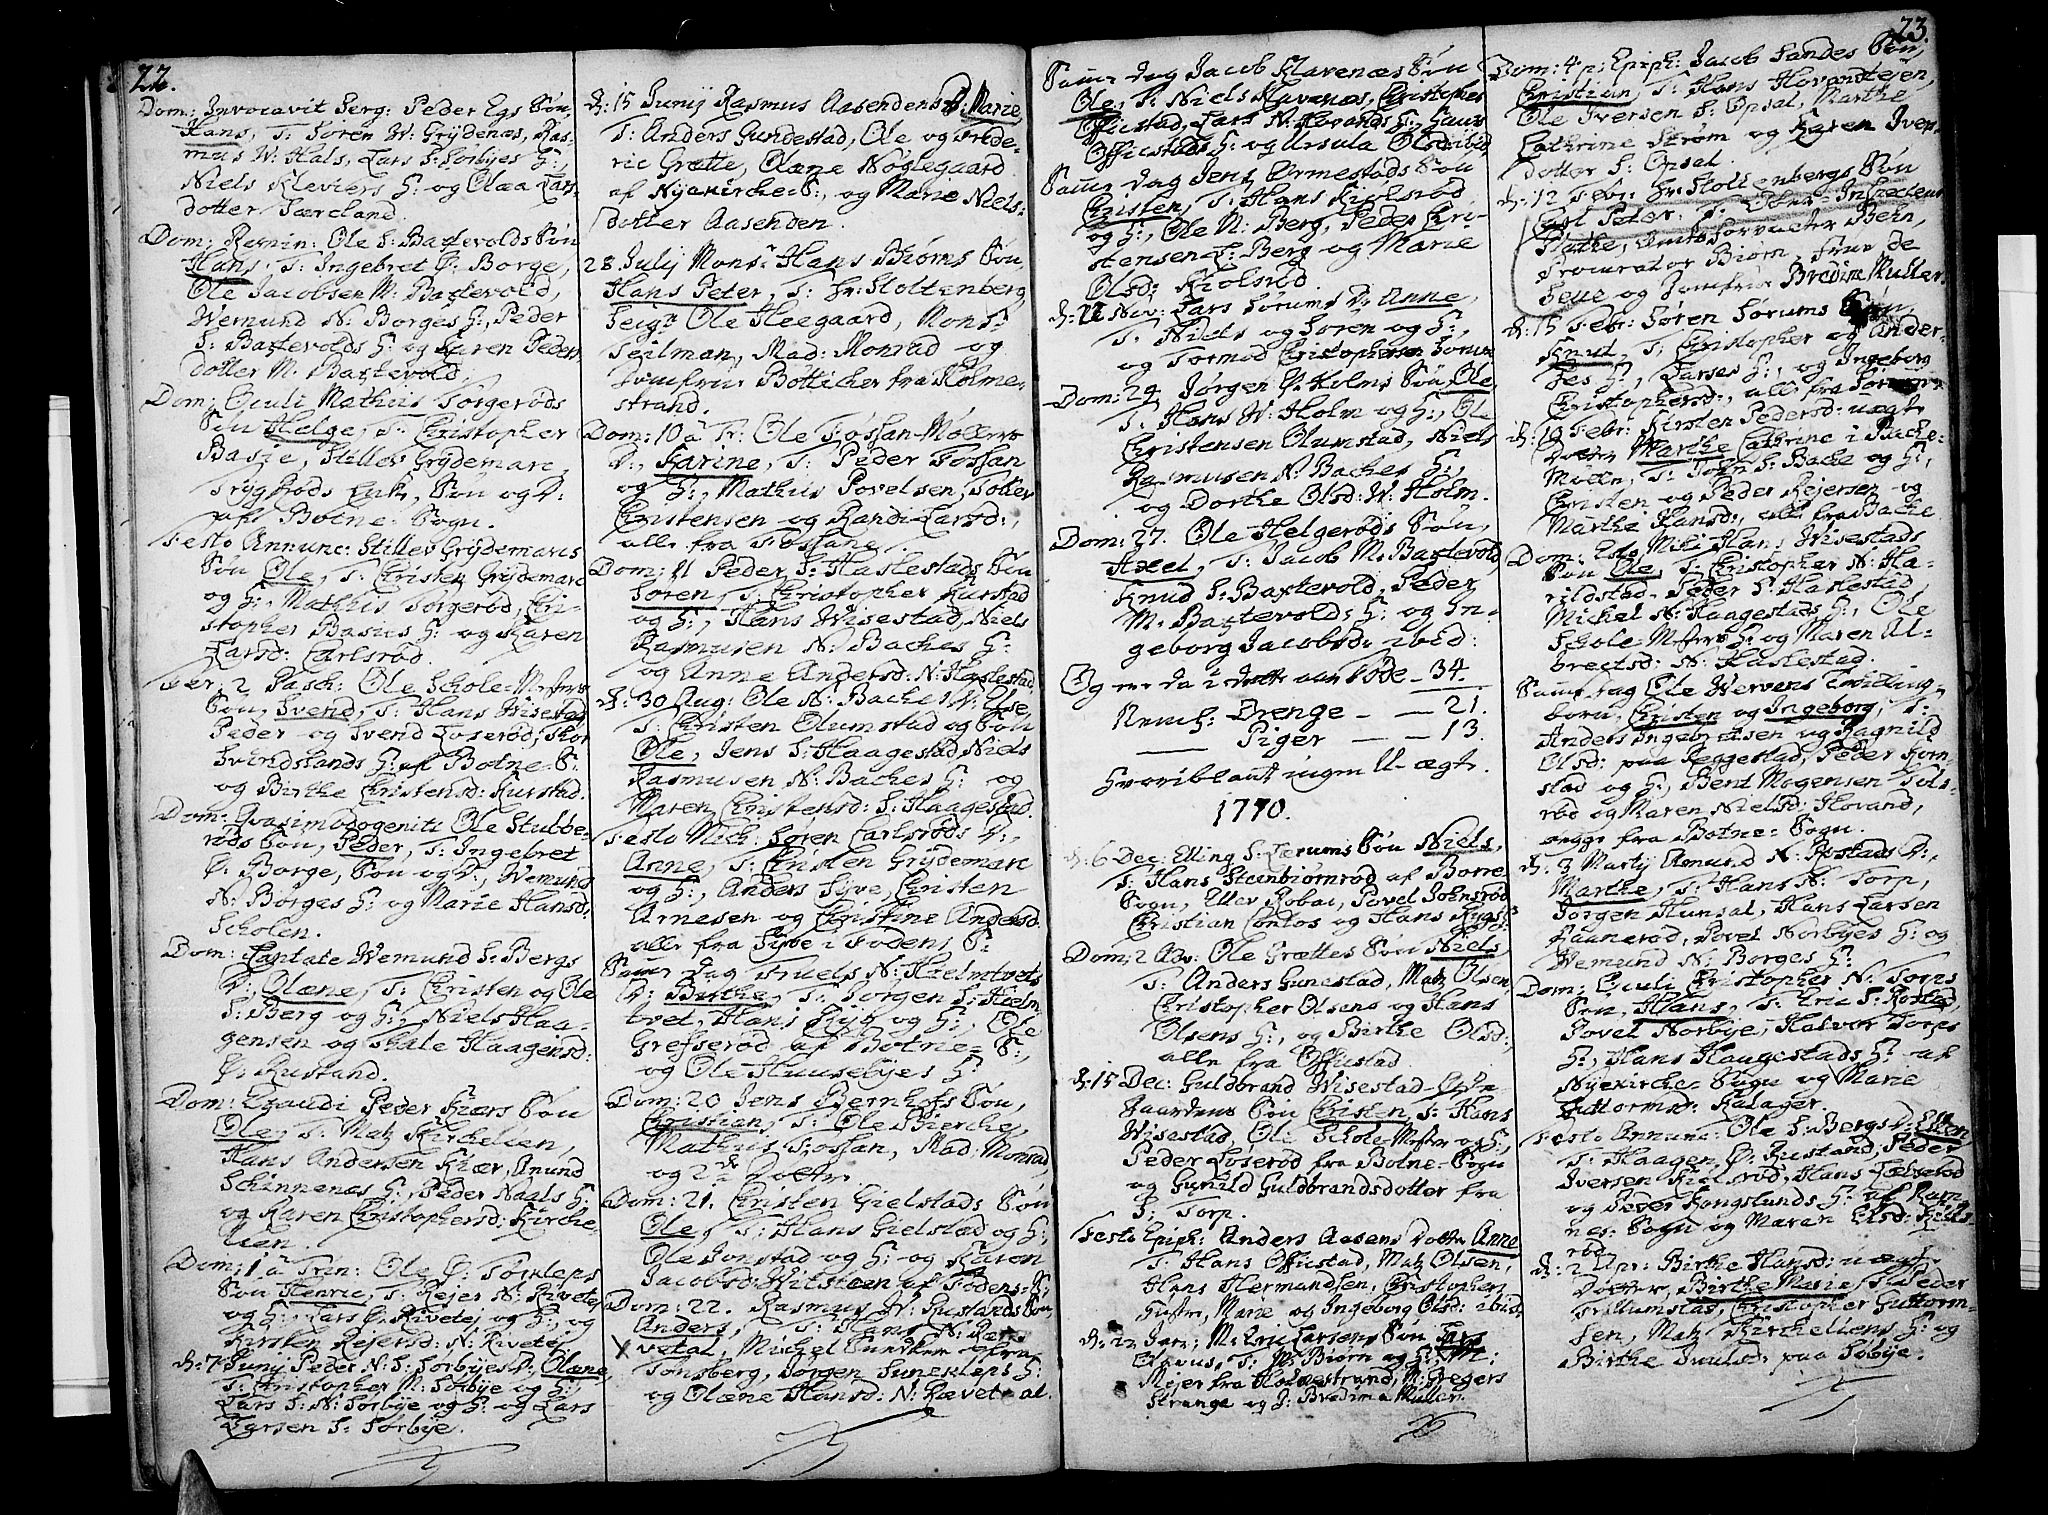 22.
Dom: Invocavit Serg: Peder Egs Søn,
Hans, T: Søren W: Grydenæs, Ras-
mus W: Hals, Lars S: Sørbyes H:,
Niels Kleviers H: og Olæa Lars-
dotter Særeland.
Dom: Remin: Ole S: Baxtevolds Søn
Hans, T: Ingebret Ø: Borge,
Ole Jacobsen M: Baxtevold,
Wemund N: Borges H:, Peder
S: Baxtevolds H: og Karen Peders
dotter M: Baxtevold.
Dom: Oculi Mathis Torgerøds
Søn Helge, T: Christopher
Basie, Stillev Grydemarc,
Trygsrøds Enke, Søn og D:
af Botne-Sogn.
Festo Annunc: Stillev Grydemarcs
Søn Ole, T: Christen Grydemarc
og H:, Mathis Torgerød, Chri-
stopher Basies H: og Karen
Larsd: Carlsrød.
Fer: 2 Pasch: Ole Schole-Mesters
Søn, Svend, T: Hans Wisestad,
Peder og Svend Loserød, Thor
Svindslands H: af Botne-S:
og Birthe Christensd: Rustad.
Dom: Qvasimodogeniti Ole Stubbe-
røds Søn, Peder, T: Ingebret
Ø: Borge, Søn og D:, Wemund
N: Borges H: og Marie Hansd:
Scholen.
Dom: Cantate Wemund S: Bergs
D:, Olæne, T: Christen og Ole
S: Berg og H:, Niels Haa-
gensen og Skale Haagensd:
Ø: Rustand.
Dom: Exaudi Peder Kiærs Søn
Ole, T: Matz Kirchelien,
Hans Andersen Kiær, Amund
Schinnenæs H:, Peder Naels H:
og Karen Christophersd: Kirche-
lien.
Dom: 1 à Trin: Ole Ø: Torkleps
Søn Henric, T: Rejer N: Rivetej
og H:, Lars Ø: Rivetej og H:, og
Kirsten Rejersd: N: Rivetej.
d: 7 Junij Peder N: S: Sørbyes D:, Olæne,
T: Christopher M: Sørbye og H:,
Lars S: N: Sørbye og H: og Lars
Larsen S: Sørbye.
d: 15 Junij Rasmus Aasendens D: Marie,
T: Anders Gundestad, Ole og Frede-
ric Grætte, Olæne Nøglegaard
af Nyekirche-S:, og Marie Niels-
dotter Aasenden.
28 Julij Monsr Hans Biørns Søn,
Hans Peter, T: Hr: Stoltenberg,
Seigr Ole Heegaard, Monsr
Teilman, Mad: Monrad og
Jomfrue Bötticher fra Holme-
strand.
Dom: 10 à Tr: Ole Fossan-Møllers
D:, Karine, T: Peder Fossan
og H:, Mathis Povelsen, Tolle
Christensen og Randi Larsd:,
alle fra Fossane.
Dom: 11 Peder S: Haslestads Søn
Soren, T: Christopher Rustad
og H:, Hans Wisestad, Niels
Rasmusen N: Baches H:
og Anne Andersd: N: Haslestad.
d: 30 Aug: Ole N: Baches D: Else,
T: Christen Olumstad og Søn
Ole, Jens S: Haagestad, Niels
Rasmusen N: Baches H: og
Maren Christensd: S: Haagestad.
Festo Mich: Søren Carlsrøds D:,
Anne, T: Christen Grydemarc
og H:, Anders Sybe, Christen
Arnesen og Christine Andersd:
alle fra Sybe i Fodens S:
Samme Dag Truels N: Hielmtvets
D: Birthe, T: Jorgen S: Hielm
tvet, Hans Ryk og H:, Ole
Grefserød af Botne-S:,
og Ole Huusebyes H:
Dom: 20 Jens Bernhofts Søn,
Christian, T: Ole Bierche,
Mathis Fossan, Mad: Monrad
og 2de Døtre.
Dom: 21. Christen Gielstads Søn
Ole, T: Hans Gielstad og H:,
Ole Jonstad og H: og Karen
Jacobsd: Witsteen af Fodens-S:
Dom: 22. Rasmus W: Rustands Søn,
Anders, T: Hans N: Ræ-
vetal, Michel fra
Tonsberg, Jorgen Sunekleps H:
og Olæne Hansd: N: Rævetal.
23.
Samme Dag Jacob Klavenæs Søn
Ole, T: Niels Klavenæs, Christopher
Offiestad, Lars N: Hovands H:, Hans
Offiestads H: og Ursula Olsd: ibid:
Samme Dag Jens Ormestads Søn
Christen, T: Hans Kiolsrød
og H:, Ole M: Berg, Peder Chri-
stensen S: Berg og Marie
Olsd: Kiolsrød.
d: 22 Nov: Lars Sørums D: Anne,
T: Niels og Soren og H:,
og Tormod Christophersen Sørum
Dom: 24. Jørgen Ø: Holms Søn Ole,
T: Hans W: Holm og H:, Ole
Christensen Olumstad, Niels
Rasmusen N: Baches H:,
og Dorthe Olsd: W: Holm.
Dom: 27. Ole Helgerøds Søn,
Axel, T: Jacob M: Baxtevold,
Knud S: Baxtevold, Peder
M: Baxtevolds H: og In-
geborg Jacobsd: ibid:
Og ere da i dette Aar Føde - 34.
Nemh: Drenge - - 21.
Piger - - 13.
Hvoriblant ingen U-ægte.
1770.
d: 6 Dec: Elling S: Særums Søn Niels,
T: Hans Steenbiørnrød af Borre
Sogn, Eller Robac, Povel Johnsrød,
Christian Contos og Hans Rygs H:
Dom: 2 Adv: Ole Grættes Søn Niels,
T: Anders Gunestad, Matz Olsen,
Christopher Olsens og Hans
Olsens H:, og Birthe Olsd:,
alle fra Offiestad
d: 15 Dec: Guldbrand Wisestad-
Gaardens Søn Christen, T: Hans
Wisestad, Ole Schole-Mester og H:,
Peder Loserød fra Botne-Sogn
og Gunild Guldbrandsdotter fra
S: Torp.
Festo Epiph: Anders Aasens Dotter Anne
T: Hans Offiestad, Matz Olsen,
Hans Hermandsen, Christopher
Marie og Ingeborg Olsd: ibid:
d: 22 Jan: M: Eric Larsens Søn Lars
Olavus, T: M: Biørn og H:, M:
Mejer fra Holmestrand, M: Gregers
Strange og J: Bredine Muller.
Dom: 4 p: Epiph: Jacob Sandes Søn
Christian, T: Hans Hovandtejen,
Ole Iversen S: Opsal, Marthe
Cathrine Strøm og Karen Iver-
dotter S: Opsal.
d: 12 Febr: Hr: Stoltenbergs Søn
Carl Peter, T: Inspecteur
Amts Forvalter Behn,
Procurator Biørn, Frue de
Seue og Jomfrue Bredine Muller.
d: 15 Febr: Søren Sørums Søn,
Knud, T: Christopher og Ander-
ses H:, Larses H:, og Ingeborg
Christophersd:, alle fra Sørum.
d: 19 Febr: Kirsten Pedersd: uægte
Dotter Marthe Cathrine i Bache-
Møllen, T: John S: Bache og H:,
Christen og Peder Rejersen og
Marthe Hansd:, alle fra Bache
Dom: Esto Mihi Hans Wisestads
Søn Ole, T: Christopher N: Ha-
rildstad, Peder S: Haslestad,
Michel N: Haagestads H:, Ole
Schole-Mesters H: og Maren Al-
brectsd: N: Haslestad.
Samme Dag Ole Wervens Tvilling-
børn, Christen og Ingeborg, T:
Anders Ingebretsen og Ragnild
Olsd: paa Reggestad, Peder Horn-
stad og H:, Bent Mogensen Tols-
rød og Maren Nielsd: Hovand,
begge fra Botne-Sogn.
d: 3 Martij Amund N: Rostads D:,
Marthe, T: Hans N: Torp,
Jorgen Hunsal, Hans Larsen
Faanerød, Povel Norbyes H: og
Wemund N: Borges H:
Dom: Oculi Christopher N: Torps
Søn, Hans, T: Eric S: Rostad,
Povel Norbye, Halvor Torps
H:, Hans Haagestads H: af
Nyekirche-Sogn og Marie
Guttormsd: Kalager.
Festo Annunc: Ole S: Bergs D: Ellen
T: Haagen Ø: Rustand, Peder
Iversen Kielsrød, Hans Løverød
og Peder Kongslunds H: af Ram-
nes-Sogn og Maren Olsd: Kiels-
rød
d: 2 Apr: Birthe Hansd: uægte
Dotter, Birthe Marie, T: Peder
Trollumstad, Christopher Guttorm-
sen, Matz Kirchelliens H: og
Birthe Juulsd: paa Søbye.